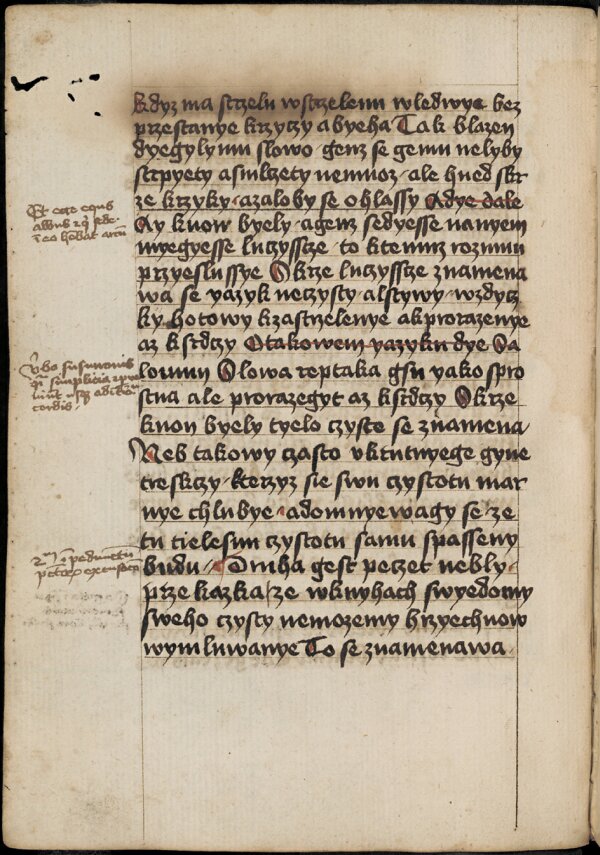 kdyz ma strzelu wstrzelenu wledwye bez
przestanye krzyczy abyeha Tak blazen
dyegylymu slowo genz se gemu nelyby
strpyety asnlzety nemuoz ale hned skr
ze krzyky azaloby se ohlassy Adye dale
Ay kuon byely agenz sedyesse nanyem
myegyesse luczyssze to ktemuz rozumu
przyeslussye Skrze luczyssze znamena
wa se yazyk neczysty alstywy wzdycz
ky hotowy kzastrzelenye akprorazenye
az ksrdczy Otakowem yazyku dye Sa
lomun Slowa reptaka gsu yako spro
stna ale prorazegyt az ksrdczy Skrze
kuon byely tyelo czyste se znamena
Neb takowy czasto vktutnyege gyne
treskczy kterzyz sie swu czystotu mar
nye chlubye adomnyewagy se ze
tu tielesnu czystotu samu spasseny
budu Druha gest peczet nebly
prze kazka ze wknyhach swyedomy
sweho czysty nemozemy hrzyechnow
wymluwanye To se znamenawa
Et ecce equs
albus et qui sede
in eo habebat arcum
verba susurronis
quasi simplicia
cordis